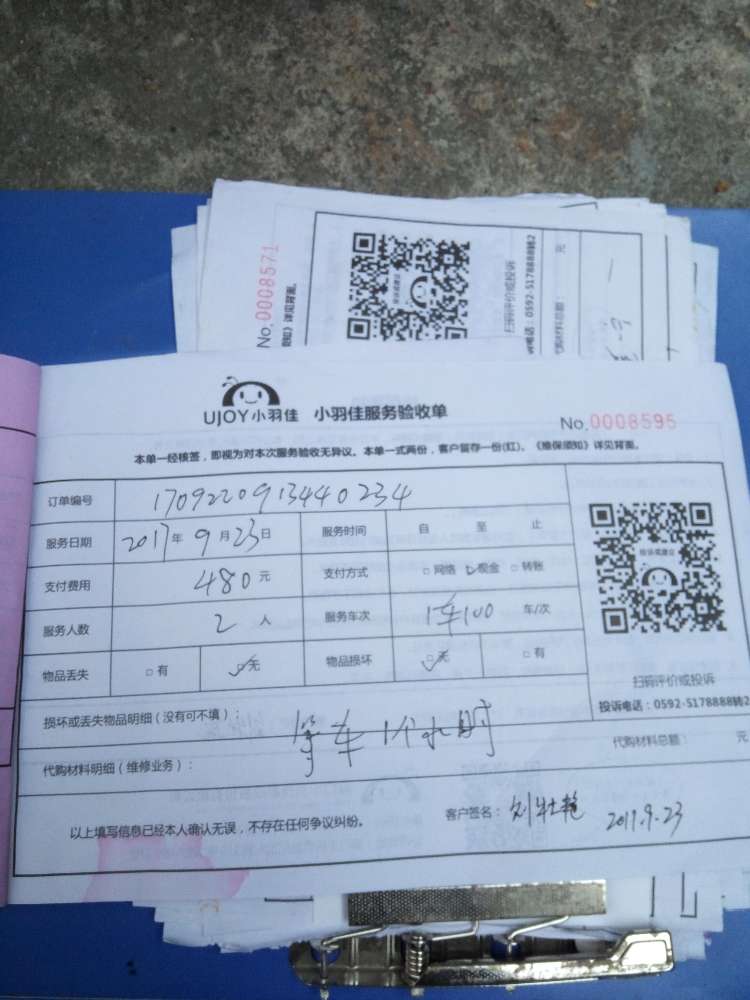 No.0008571
须知》详见背面。
投诉或建议
扫码评价或投诉
诉电话：0592-5178888转2
代购材料总额：
元
UJOY小羽佳 小羽佳服务验收单
No.0008595
本单一经核签，即视为对本次服务验收无异议。本单一式两份，客户留存一份(红)。《维保须知》详见背面。
订单编号 170922091344 0234
服务日期 2017年9月23日 服务时间 自 至 止
支付费用 480元 支付方式 □网络 ☑现金 □转账
服务人数 2人 服务车次 1车100 车/次
物品丢失 □有 ☑无 物品损坏 ☑无 □有
投诉或建议
扫码评价或投诉
投诉电话：0592-5178888转2
损坏或丢失物品明细（没有可不填）：
等车1个小时
代购材料明细（维修业务）：
代购材料总额： 元
以上填写信息已经本人确认无误，不存在任何争议纠纷。
客户签名：刘 艳 2017.9.23